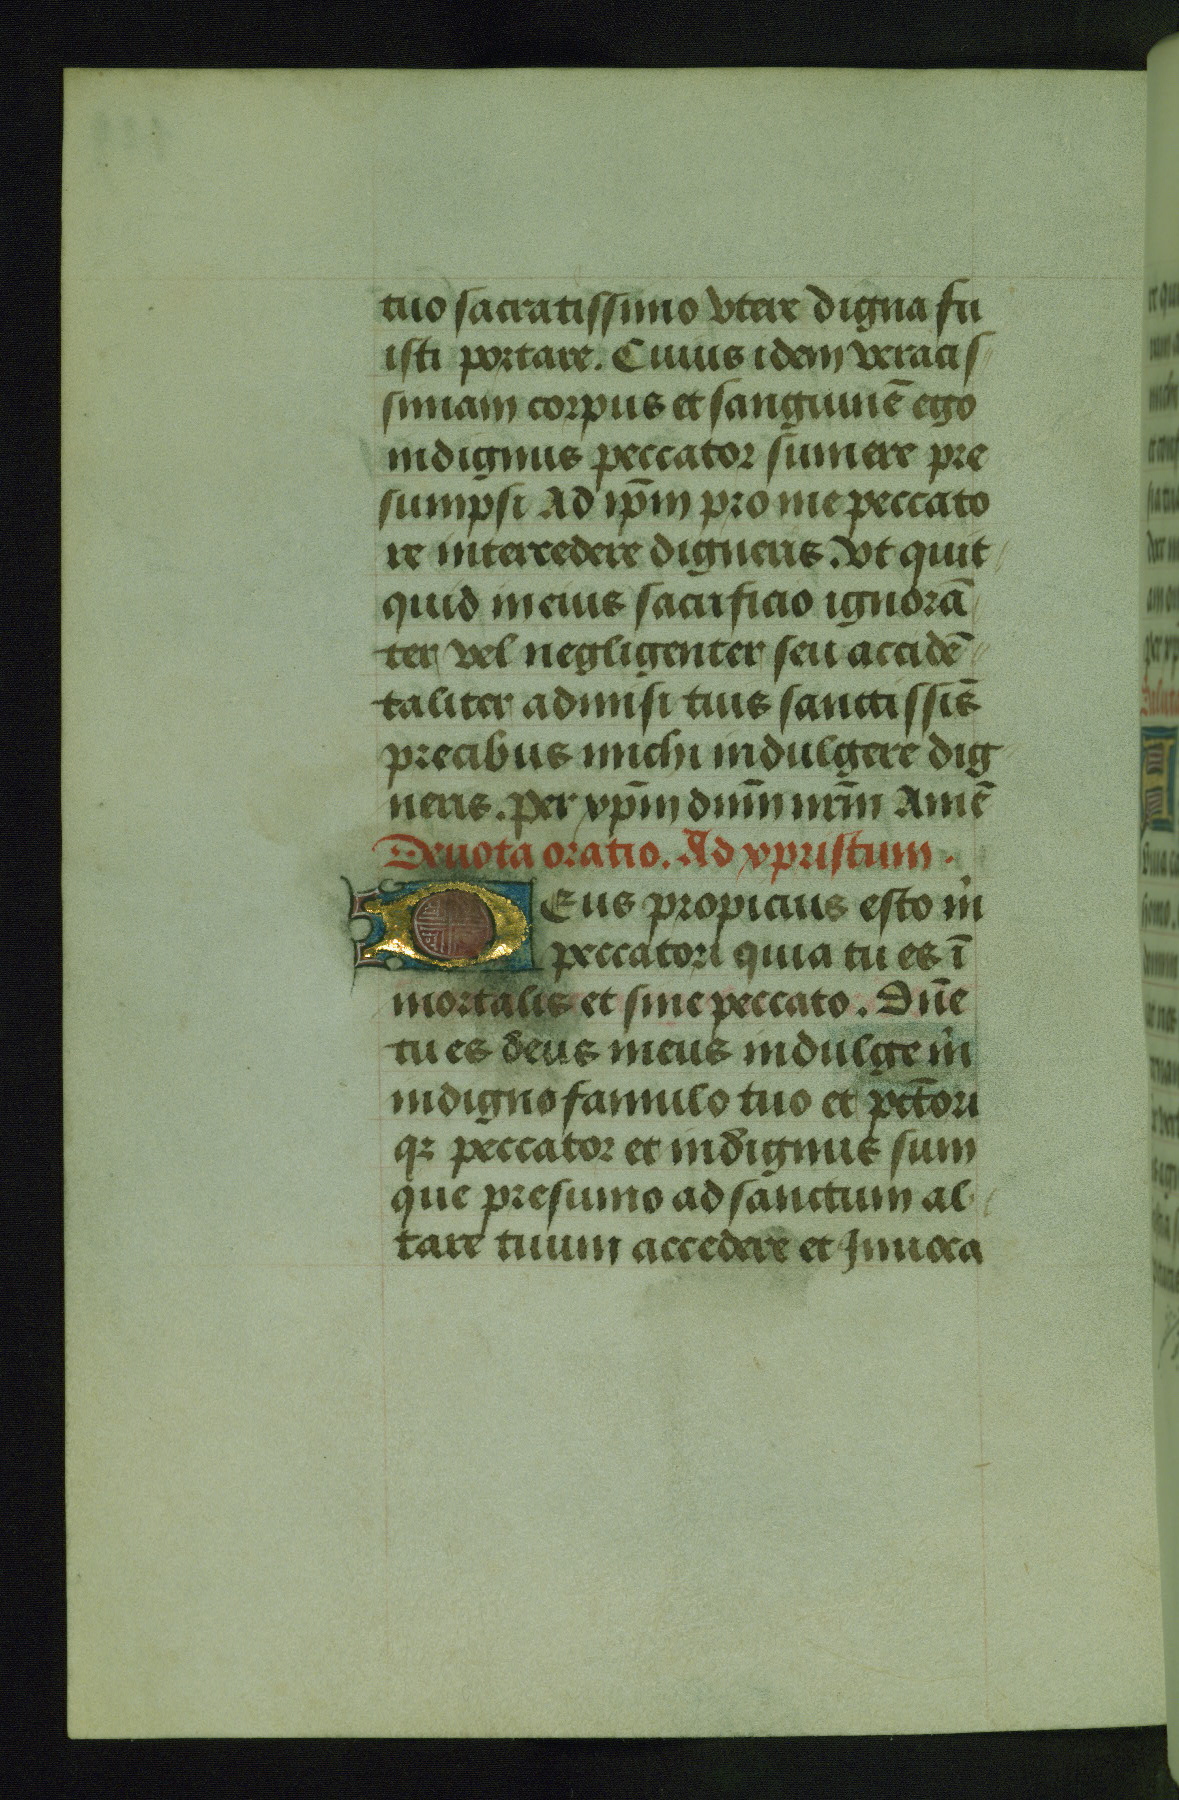 tuo sacratissimo vtere digna fu
isti portare. Cuius idem veracis
simam corpus et sanguinē ego
indignus peccator sumere pre
sumpsi Ad ip̄m pro me peccato
re intercedere digneris. Vt quit
quid in eius sacrificio ignorā
ter vel negligenter seu accidē
taliter admisi tuis sanctissis̄
precibus michi indulgere dig
neris. per xp̄m dnm̄ nrm̄ Amē
Deuota oratio. Ad xpristum.
DEus propicius esto m̄
peccatori quia tu es ī
mortalis et sine peccato. Dn̄e
tu es deus meus indulge m̄
indigno famulo tuo et pct̄ori
qꝛ peccator et indignus sum
que presumo ad sanctum al
tare tuum accedere et Inuoca